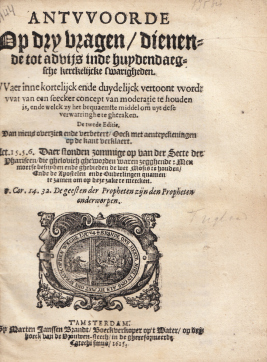 ANTVVOORDE
Op dry vragen / dienen-
de tot advijs inde huydendaeg-
sche kerckelijcke swarigheden.
VVaer inne kortelijck ende duydelijck vertoont wordt
wat van een seecker concept van moderatie te houden
is, ende welck zy het bequaemste middel om uyt dese
verwarringhe te gheraken.
De tweede Editie,
Van nieus overzien ende verbetert / Oock met aenteyckeningen
op de kant verklaert.
Act. 15.5.6. Daer stonden zommige op van der Secte der
Phariseen die gheloovich gheworden waren zegghende: Men
moetse besnyden ende ghebieden de wet Mosis te houden /
Ende de Apostelen ende Ouderlingen quamen
te zamen om op deze zake te mercken.
1. Cor. 14. 32. De geesten der Propheten zijn den Propheten
onderworpen.
T'AMSTERDAM.
By Marten Janssen Brandt / Boeckverkoper op't Water / op den
hoeck van de Vrouwen-steech / in de ghereformeerde
Catechismus / 1615.